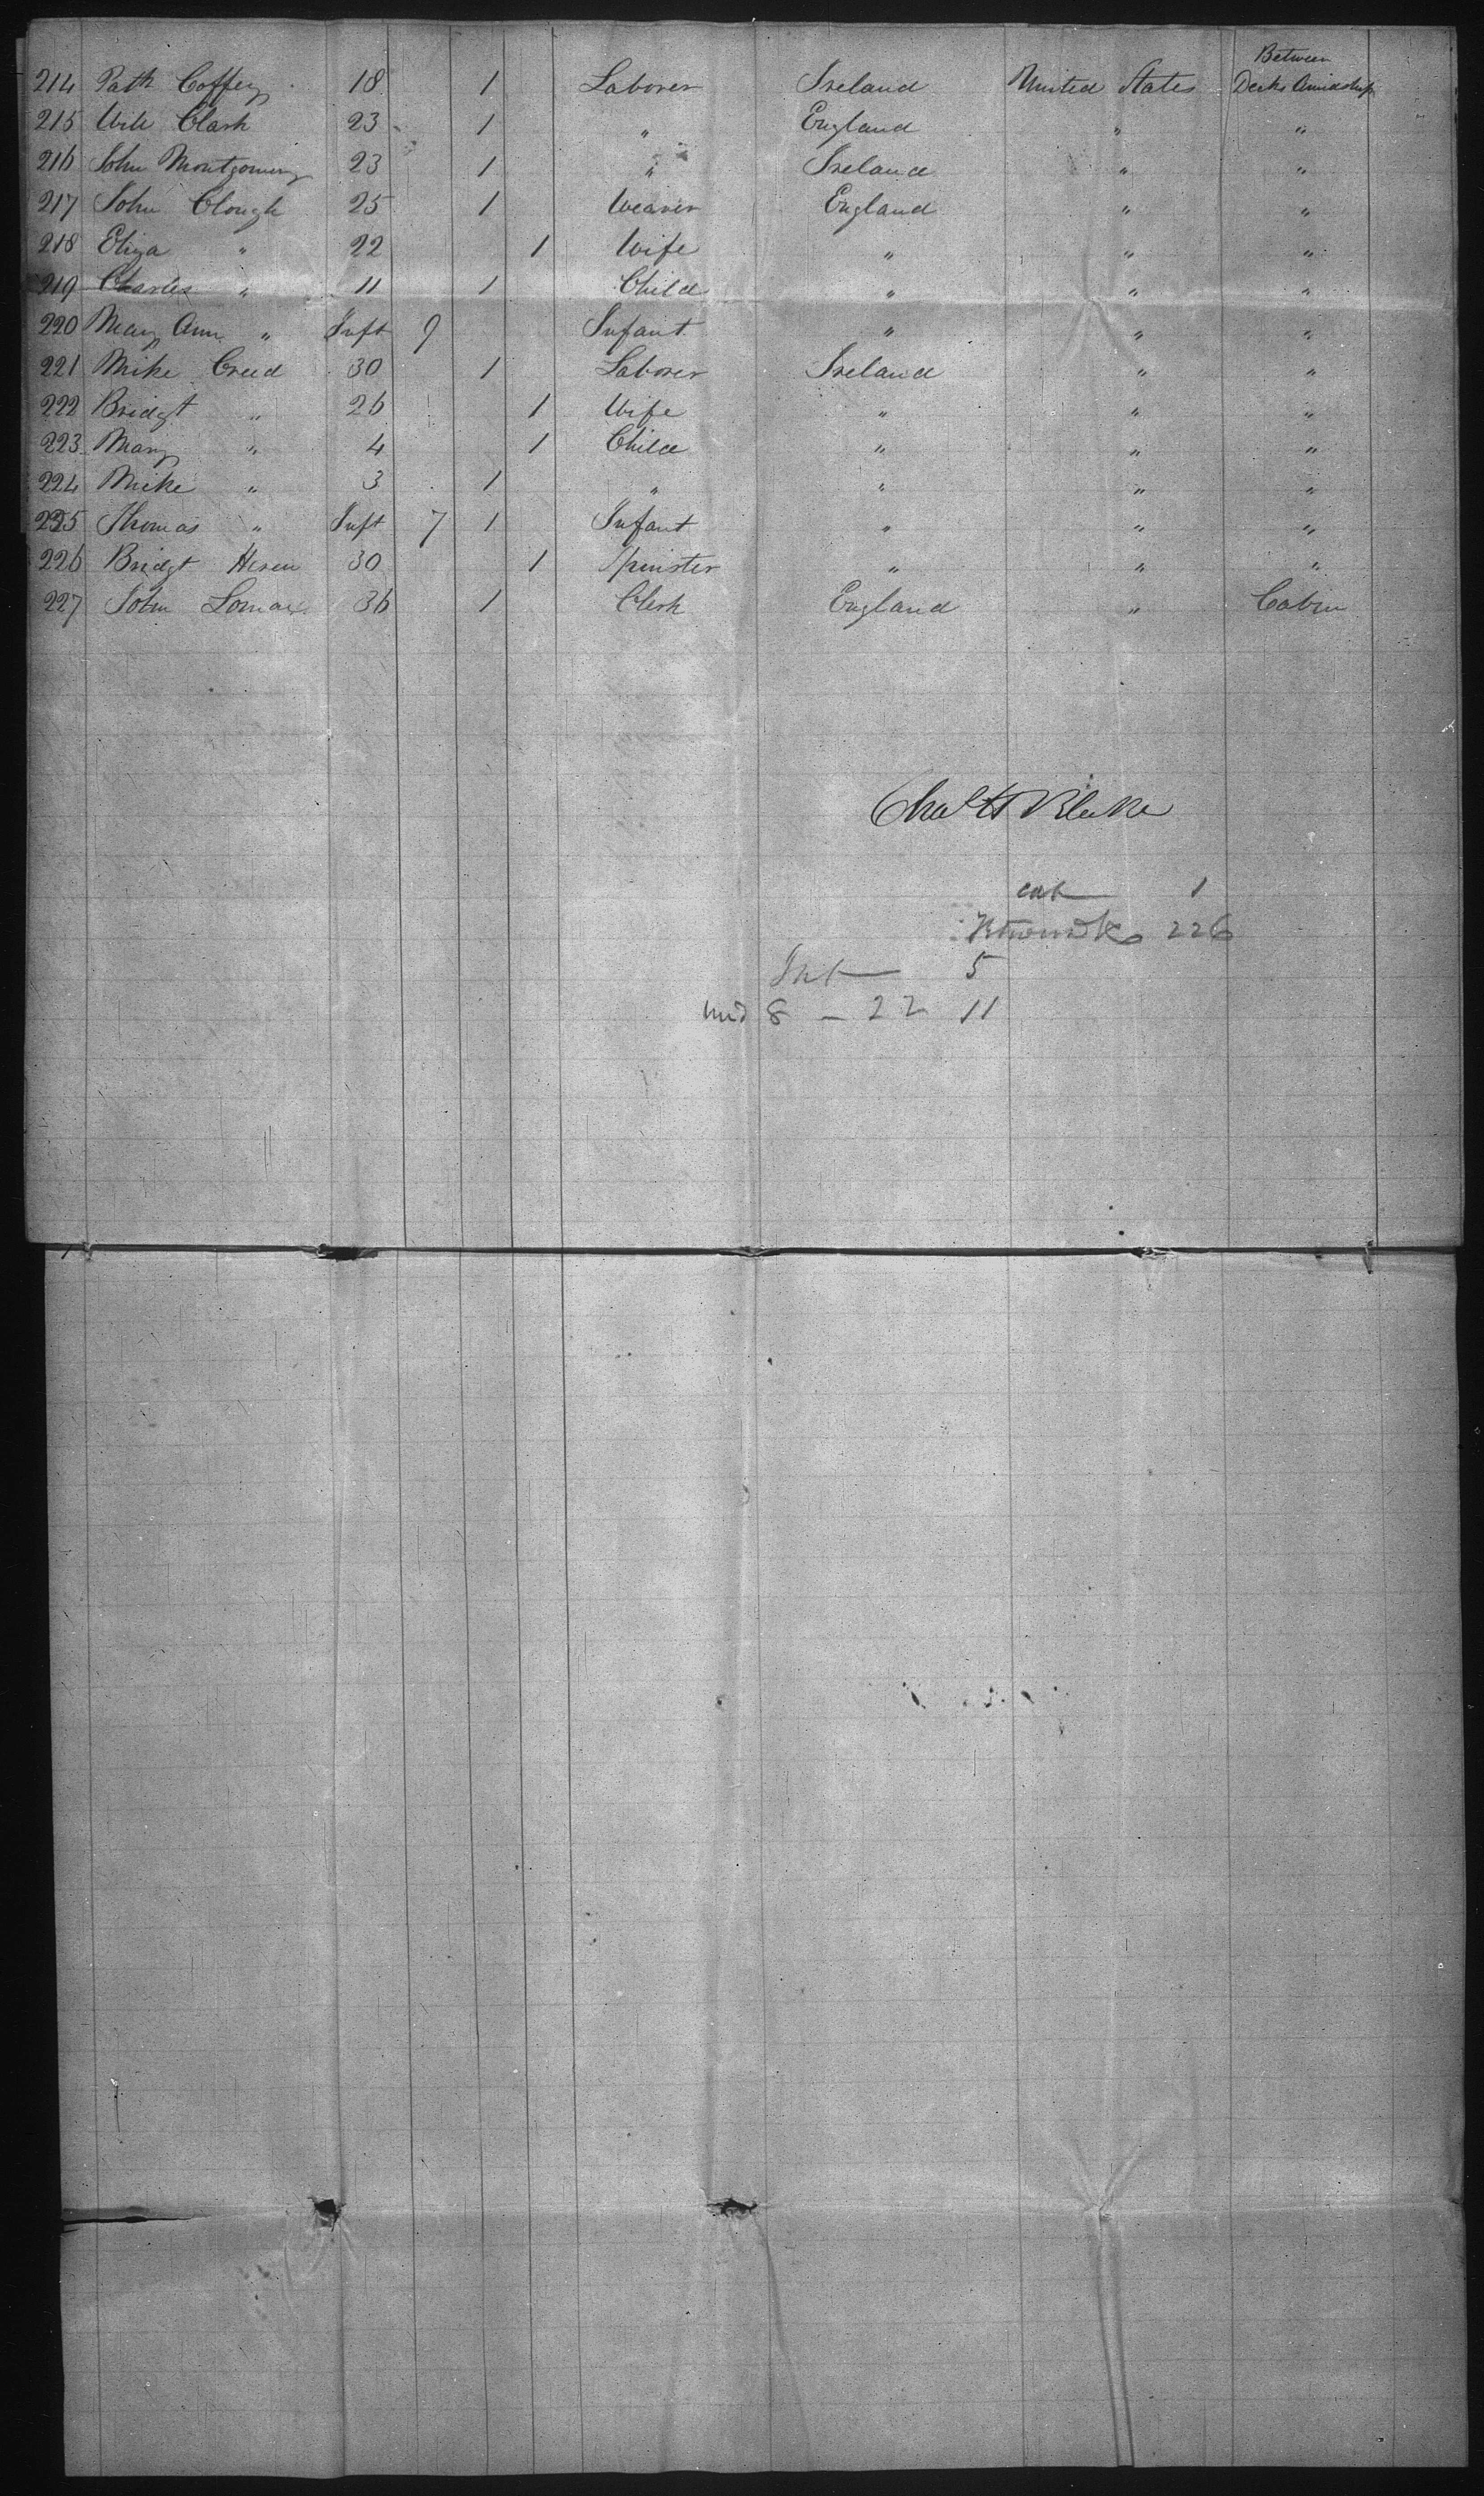 Between
214 Patk Coffey 18 1 Laborer Ireland United States Decks Amidship
215 Will Clark 23 1 " England " "
216 John Montgomery 23 1 " Ireland " "
217 John Clough 25 1 Weaver England " "
218 Eliza " 22 1 Wife " " "
219 Charles " 11 1 Child " " "
220 Mary Ann " Inft 9 Infant " " "
221 Mike Creed 30 1 Laborer Ireland " "
222 Bridgt " 26 1 Wife " " "
223 Mary " 4 1 Child " " "
224 Mike " 3 1 " " " "
225 Thomas " Inft 7 1 Infant " " "
226 Bridgt Heren 30 1 Spinster " " "
227 John Lomax 36 1 Clerk England " Cabin
Chas H Blake
cab 1
226
Inf 5
und 8 - 22 11